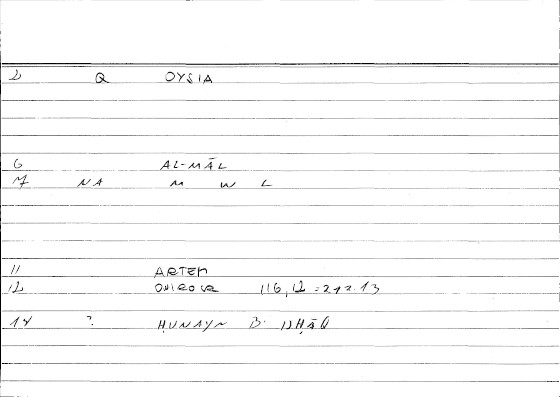 2 Q OYSIA
6 AL-MĀL
7 NA M W L
11 ARTEM
12 ONIROCR 116,12 = 212.13
14 ? ḤUNAYN B. ISḤĀQ